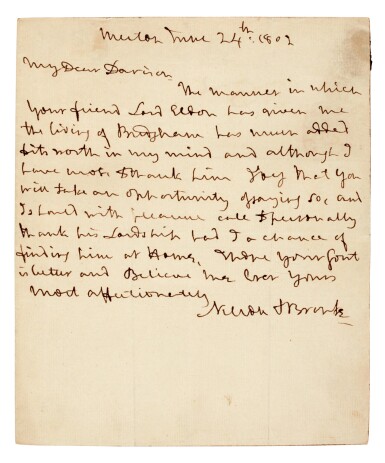 Merton June 24th: 1802
My Dear Davison
The manner in which
your friend Lord Eldon has given me
the living of Bringham has much added
its worth in my mind and although I
have wrote & thank him I beg that you
will take an opportunity of saying so, and
I should with pleasure call & personally
thank his Lordship had I a chance of
finding him at Home, I hope your gout
is better and Believe me Ever Yours
most affectionately
Nelson & Bronte